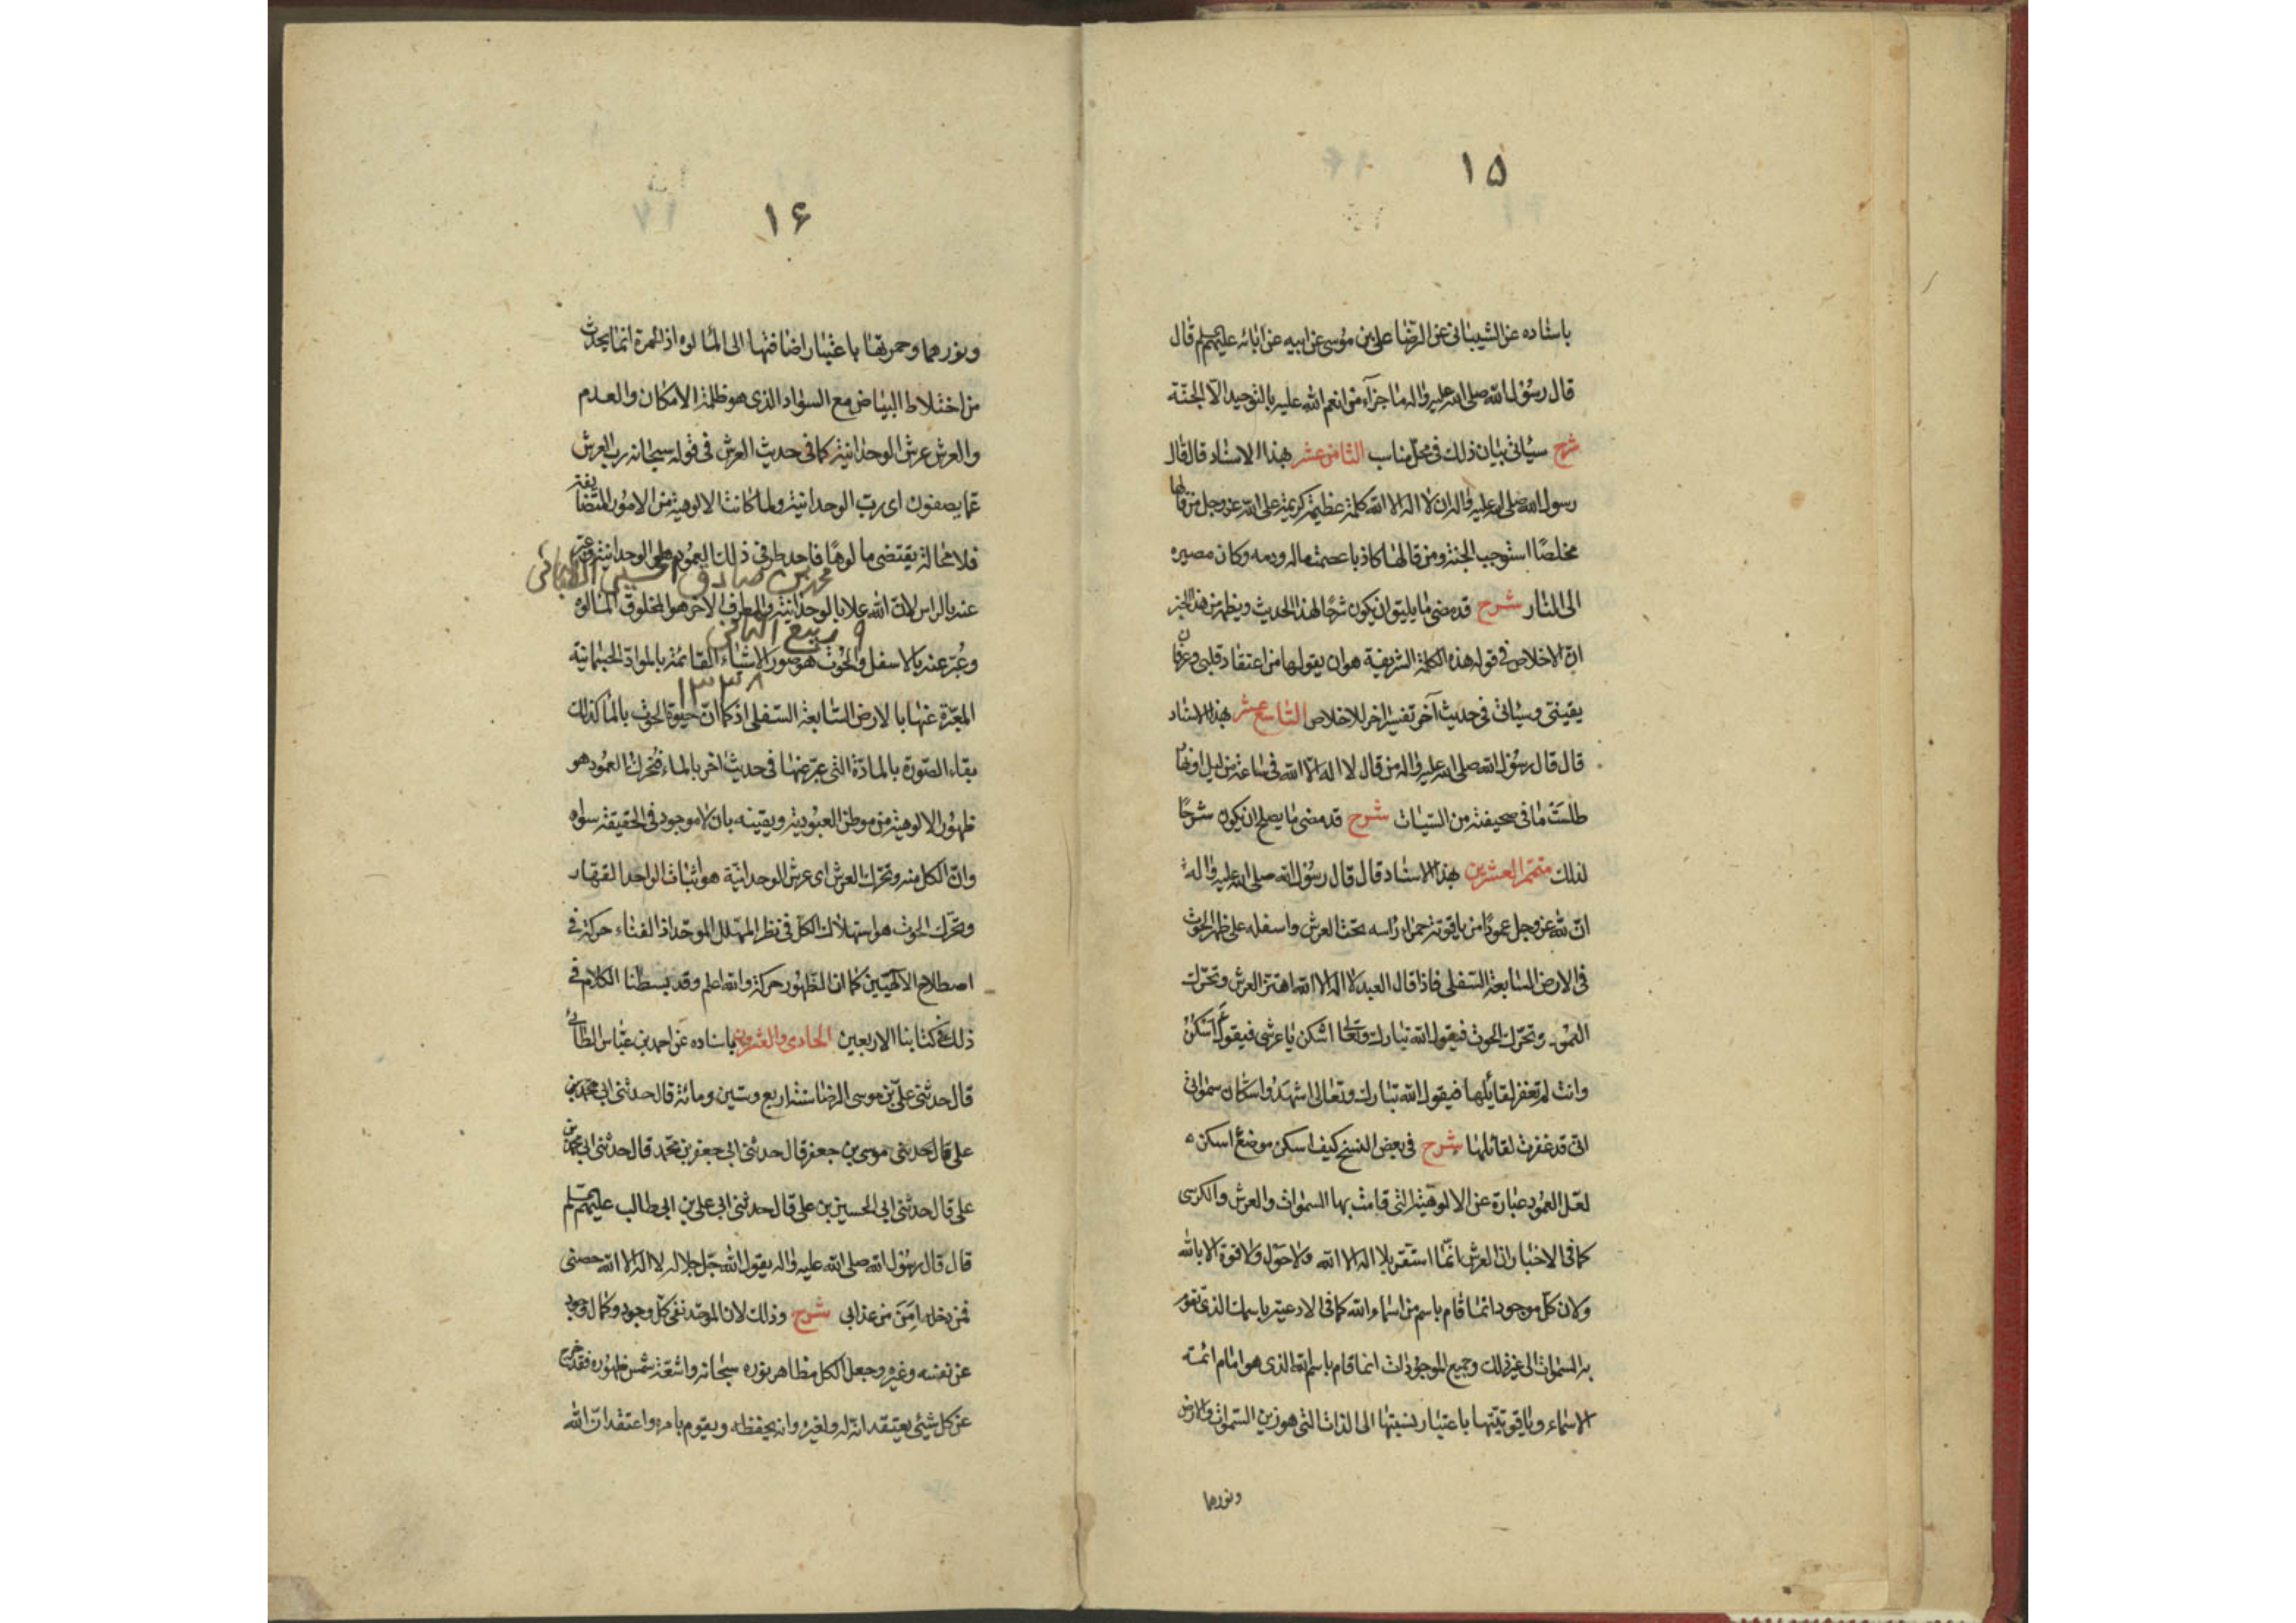 ۱۵
باسناده عن الشيبانى عن الرضا على بن موسى عن ابيه عن ابائه عليهم قال
قال رسول الله صلى الله عليه واله ما جزاء من انعم الله عليه بالتوحيد الا الجنة
شرح سيأتى بيان ذلك فى محل مناسب الثامن عشر بهذا الاسناد قال قال
رسول الله صلى الله عليه واله ان لا اله الا الله كلمة عظيمة كريمة على الله عز وجل من قالها
مخلصًا استوجب الجنة ومن قالها كاذبا عصمت ماله ودمه وكان مصيره
الى النار شرح قد مضى ما يليق ان يكون شرحًا لهذا الحديث ويظهر من هذا الخبر
ان الاخلاص فى قوله هذه الكلمة الشريفة هو ان يقولها من اعتقاد قلبى وعرفان
يقينى وسيأتى فى حديث آخر تفسير اخر للاخلاص التاسع عشر بهذا الاسناد
قال قال رسول الله صلى الله عليه واله من قال لا اله الا الله فى ساعة من ليل او نهار
طلست ما فى صحيفته من السيئات شرح قد مضى ما يصلح ان يكون شرحًا
لذلك متمم العشرين بهذا الاسناد قال قال رسول الله صلى الله عليه واله
ان لله عز وجل عمودًا من ياقوتة حمراء رأسه تحت العرش واسفله على ظهر الحوت
فى الارض السابعة السفلى فاذا قال العبد لا اله الا الله اهتز العرش وتحرك
العمود وتحرك الحوت فيقول الله تبارك وتعالى اسكن يا عرشى فيقول اسكن
وانت لم تغفر لقائلها فيقول الله تبارك وتعالى اشهدوا سكان سمواتى
انى قد غفرت لقائلها شرح فى بعض النسخ كيف اسكن موضع اسكن ه
لعل العمود عبارة عن الالوهية التى قامت بها السموات والعرش والكرسى
كما فى الاخبار ان العرش انما استقر بلا اله الا الله ولا حول ولا قوة الا بالله
ولان كل موجود انما قام باسم من اسماء الله كما فى الادعية باسمك الذى تقوم
به السموات الى غير ذلك وجميع الموجودات انما قام باسم الله الذى هو امام ائمة
الاسماء وياقوتيتها باعتبار نسبتها الى الذات التى هو زين السموات والارض
ونورهما
۱۶
ونورهما وحمرتها باعتبار اضافتها الى المألوه اذ الحمرة انما يحدث
من اختلاط البياض مع السواد الذى هو ظلمة الامكان والعدم
والعرش عرش الوحدانية كما فى حديث العرش فى قوله سبحانه رب العرش
عما يصفون اى رب الوحدانية ولما كانت الالوهية من الامور المتضايفة
فلا محالة يقتضى مألوهًا فاحد طرفى ذلك العمود على الوحدانية وعبر
محمد بن صادق الحسينى الطباطبائى
عنه بالراس لان الله علا بالوحدانية والطرف الاخر هو المخلوق المألوه
۹ ربيع الثانى
وعُبّر عنه بالاسفل والحوت هو صور الاشياء القائمة بالمواد الجسمانية
۱۳۳۸
المعبّرة عنها بالارض السابعة السفلى اذ كما ان حيوة الحوت بالماء كذلك
بقاء الصورة بالمادة التى عبر عنها فى حديث اخر بالماء فتحرك العمود هو
ظهور الالوهية من موطن العبودية ويقينه بان لا موجود فى الحقيقة سواه
وان الكل منه وتحرك العرش اى عرش الوحدانية هو اثبات الواحد القهار
وتحرك الحوت هو استهلاك الكل فى نظر المهلل الموحد اذ الفناء حركة فى
اصطلاح الالهيين كما ان الظهور حركة والله اعلم وقد بسطنا الكلام فى
ذلك فى كتابنا الاربعين الحادى والعشرون باسناده عن احمد بن عباس الطائى
قال حدثنى على بن موسى الرضا سنة اربع وتسين ومائة قال حدثنى ابى
على قال حدثنى موسى بن جعفر قال حدثنى ابى جعفر بن محمد قال حدثنى ابى محمد بن
على قال حدثنى ابى الحسين بن على قال حدثنى ابى على بن ابى طالب عليهم
قال قال رسول الله صلى الله عليه واله يقول الله جل جلاله لا اله الا الله حصنى
فمن دخله امن من عذابى شرح وذلك لان الموحد نفى كل وجود وكمال وجود
عن نفسه وغيره وجعل الكل مظاهر نوره سبحانه واشعة شمس ظهوره فقد خرج
عن كل شيئ يعتقد انه له ولغيره وانه يحفظه ويقوم بامره واعتقد ان الله